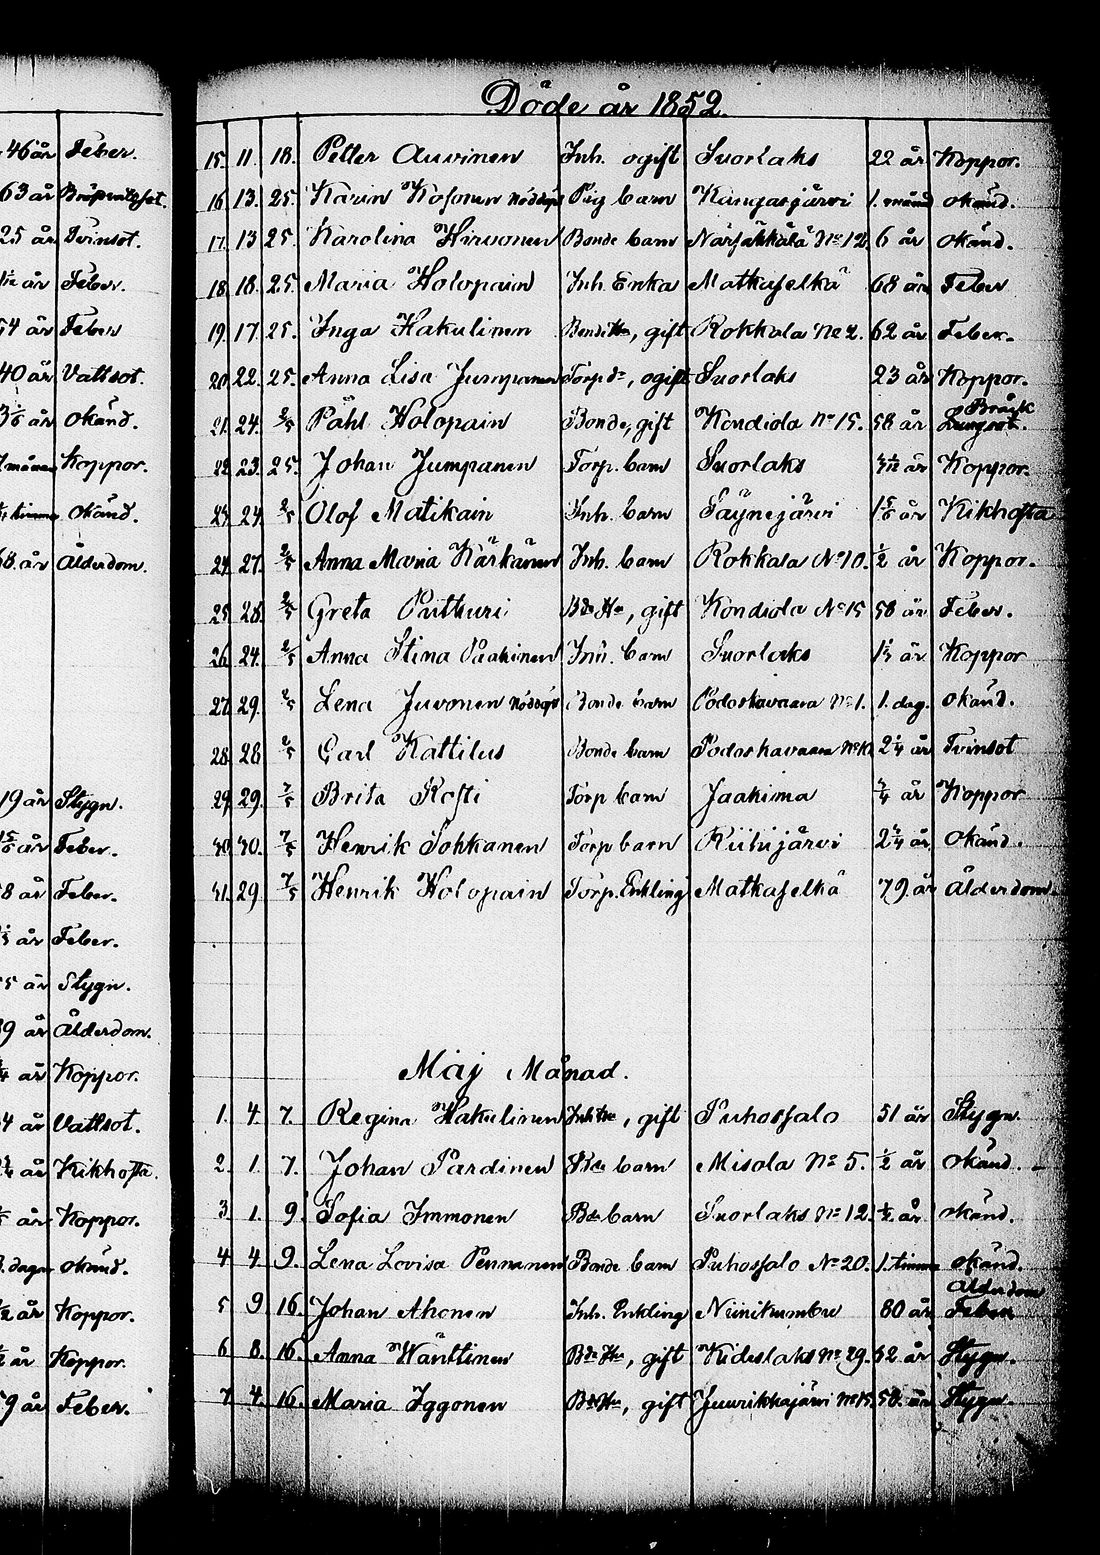 46 år Feber.
63 år Bröpensighet.
25 år Tvinsot.
år Feber.
54 år Feber
40 år Vattsot.
år okänd.
månad Koppor.
timme okänd.
68. år Ålderdom.
19 år Stygn.
år Feber.
8 år Feber.
år Feber.
55 år Stygn.
89 år Ålderdom.
år Koppor.
4 år Vattsot.
år Kikhosta.
år Koppor.
dagar okänd.
år Koppor.
år Koppor.
59 år Feber.
Döde år 1852.
15. 11. 18. Petter Auvinen Inh. ogift Suorlaks 22 år Koppor.
16. 13. 25. Karin Kosonen nöddöpt Pig barn Kangasjärvi 1. månad okänd.
17. 13 25. Karolina Hirvonen Bonde barn Närsäkkälä No 12 6 år okänd.
18. 18. 25. Maria Holopain Inh. Enka Matkaselkä 68 år Feber
19. 17. 25. Inga Hakulinen gift Rokkala No 2. 62 år Feber.
20. 22. 25. Anna Lisa Jumpanen Torp dr, ogift Suorlaks 23 år Koppor.
21. 24. 2/5 Påhl Holopain Bonde, gift Kondiola No 15. 58 år Bråck Lungsot.
22. 23. 25. Johan Jumpanen Torp. barn Suorlaks år Koppor.
23. 24. 2/5 Olof Matikain Inh. barn Säynejärvi 1 5/6 år Kikhosta
24. 27. 2/5 Anna Maria Kärkänen Inh. barn Rokkala No 10. 1/2 år Koppor.
25 28. 2/5 Greta Putturi Bde Hu, gift Kondiola No 15 58 år Feber.
26 24. 2/5 Anna Stina Paakinen Inh. barn Suorlaks år Koppor
27 29. 2/5 Lena Juvonen nöddöpt Bonde barn Podoskavaara No 1. 1. dag. okänd.
28. 28 2/5 Carl Kattilus Bonde barn Podoskavaara 2 1/4 år Tvinsot
29. 29. 7/5 Brita Kosti Torp barn Jaakima 3/4 år Koppor
30. 30. 7/5 Henrik Sohkanen Torp barn Riihijärvi 2 3/4 år okänd.
31. 29 7/5 Henrik Holopain Torp. Enkling Matkaselkä 79. år Ålderdom.
Maj Månad.
1. 4. 7. Regina Hakulinen Inh Hu, gift Puhossalo 51 år Stygn.
2. 1. 7. Johan Pardinen Bde barn Misola No 5. 1/2 år okänd.
3. 1. 9. Sofia Immonen Bde barn Suorlaks No 12. år okänd.
4 4. 9. Lena Lovisa Pennanen Bonde barn Puhossalo No 20. 1. timme okänd.
5 9 16. Johan Ahonen Inh. Enkling Niinikumbu 80 år Ålderdom Feber
6 8. 16. Anna Wänttinen Bde Hu, gift Kideslaks No 29. 52. år Stygn.
7 4. 16. Maria Iggonen Bde Hu, gift Juurikkajärvi No 15. 58. år Stygn.